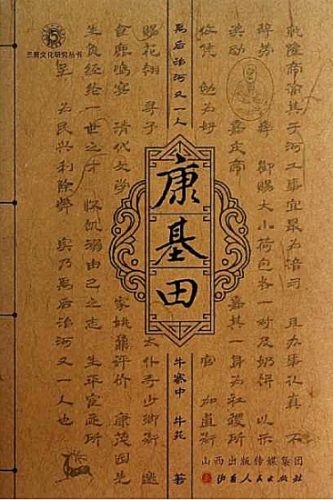 三晋文化研究丛书
禹后治河又一人
康基田
牛寨中 牛苑 著
山西出版传媒集团
山西人民出版社
乾隆帝谕其于河工事宜最为谙习 且办事认真
辞劳 御赐大小荷包各 对及奶饼 以示
奖励 嘉庆帝 嘉其一身为社稷所
攸倚 勉为好 官 加道衔
赐花翎 寻子 太仆寺少卿衔
食鹿鸣宴 清代文学 家姚鼐评价 康茂园先
生负经纶一世之才 怀饥溺由己之志 生平宦迹所
至 为民兴利除弊 实乃禹后治河又一人也